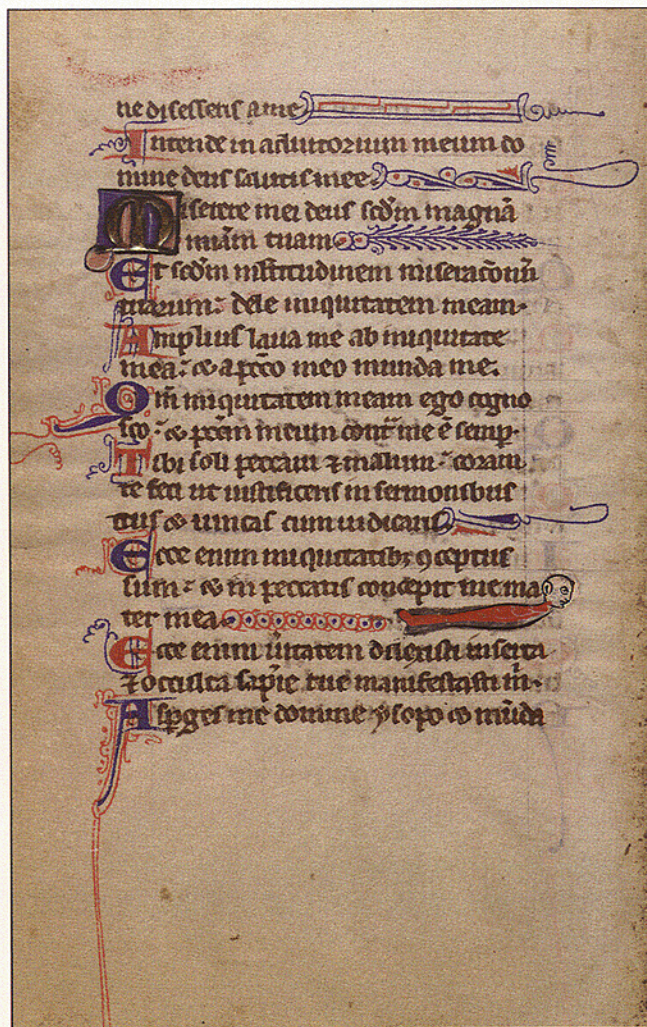 ne discesseris a me
Intende in adiutorium meum do
mine deus salutis mee
Miserere mei deus scdm magnā
miām tuam
Et scdm multitudinem miseraconū
tuarum: dele iniquitatem meam.
Amplius laua me ab iniquitate
mea: & a pcco meo munda me.
Qm̄ iniquitatem meam ego cogno
sco: & pccm meum cont̄ me ē semp.
Tibi soli peccaui ⁊ malum: coram
te feci ut iustificeris in sermonibus
tuis & uincas cum iudicaris
Ecce enim iniquitatibȝ ꝯceptus
sum: & in peccatis concepit me ma
ter mea
Ecce enim ūitatem dilexisti incerta
⁊ occulta sapīe tue manifestasti m̄.
Aspges me domine ysopo & mūda